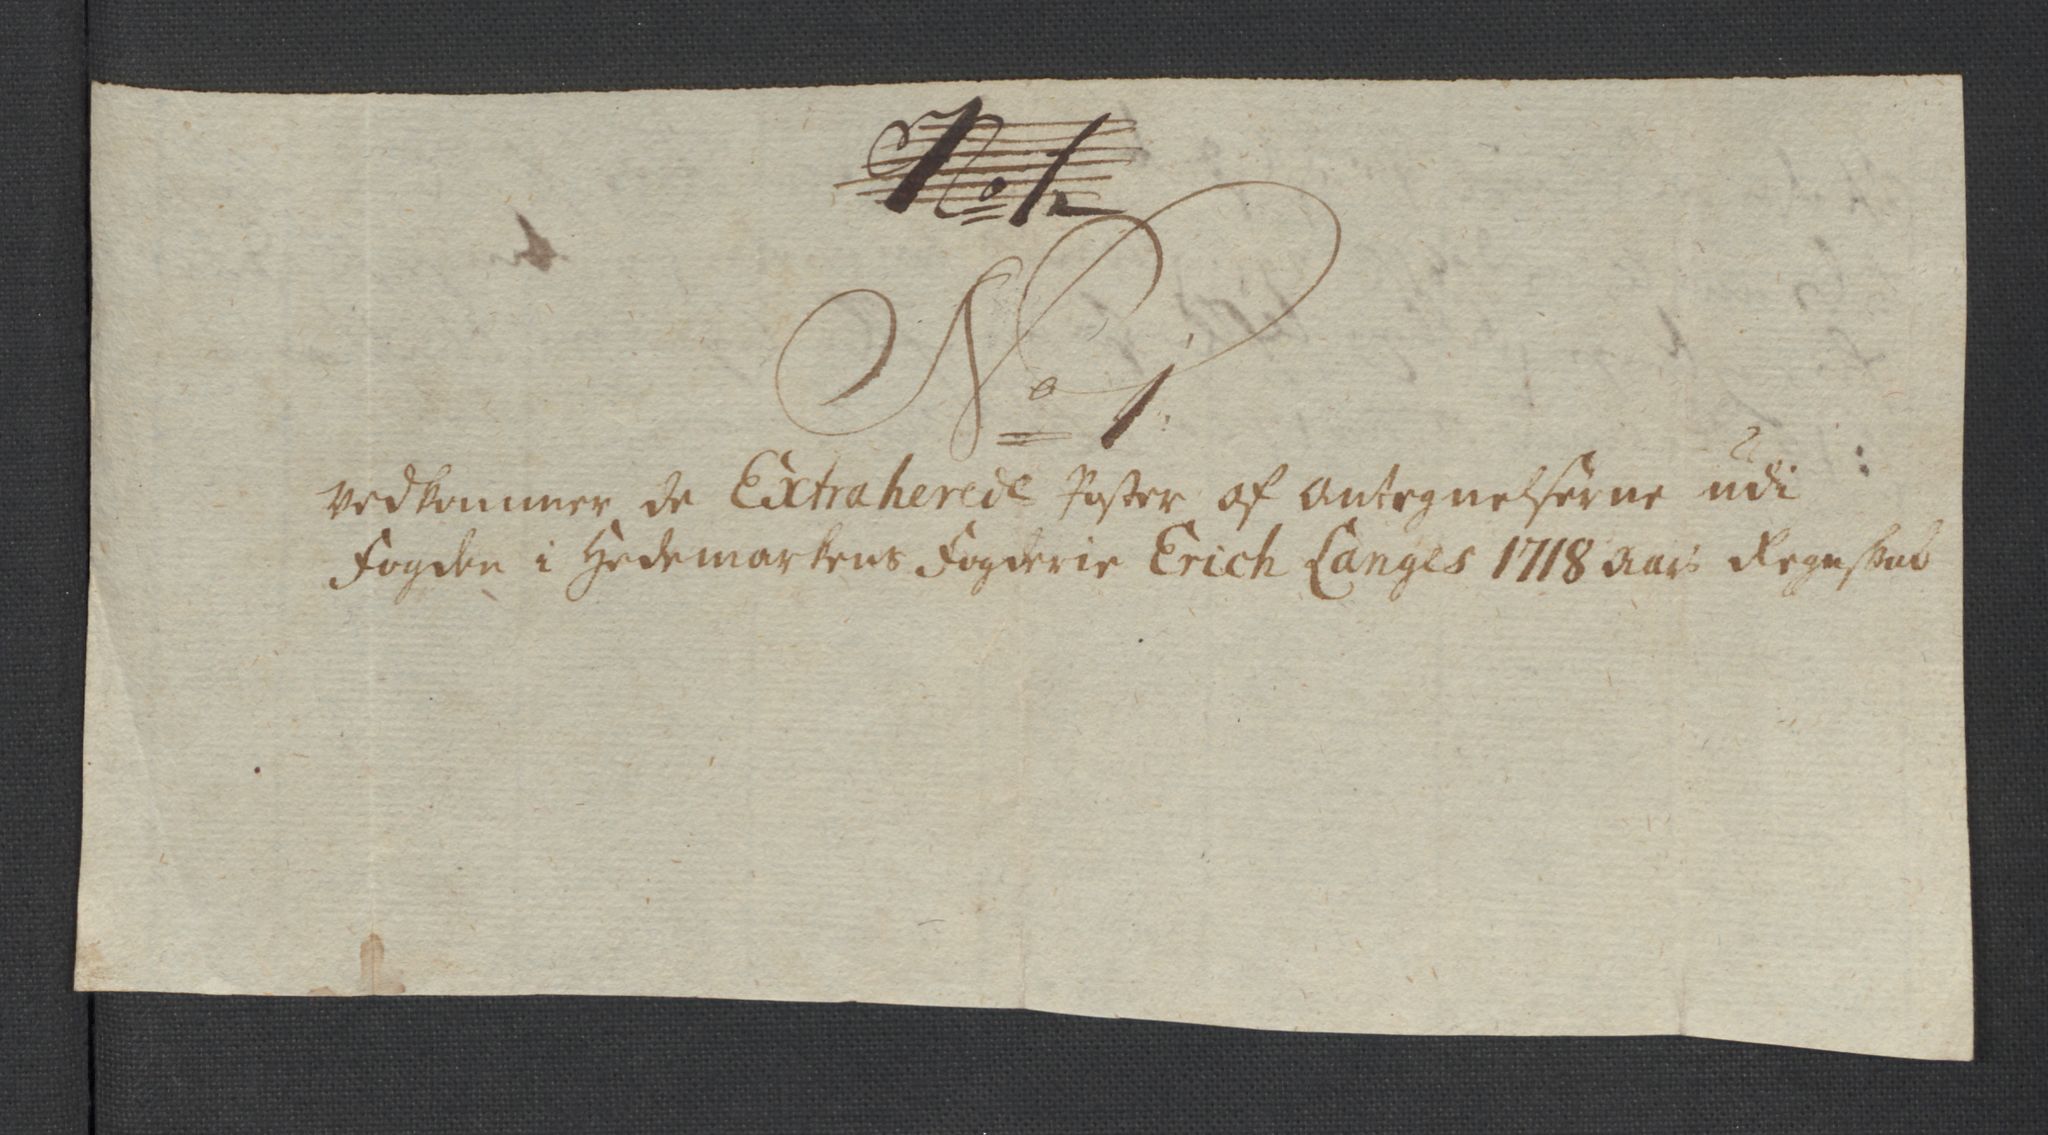 No 1
No 1
vedkommer de Extraherede Poster af Antegnelserne udi
Fogden i Hedemarkens Fogderie Erich Langes 1718 Aars Regnskab